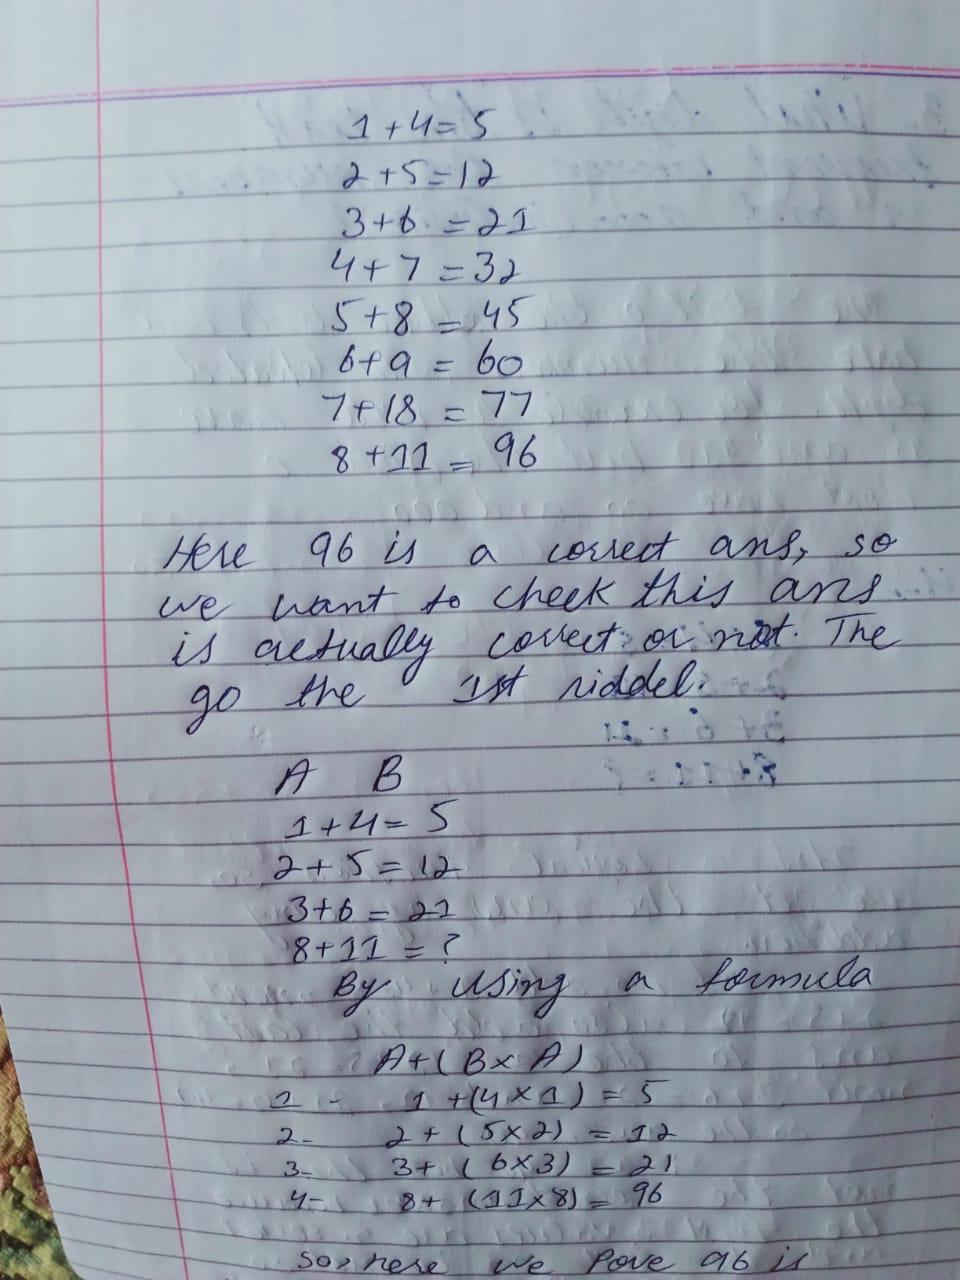 1+4=5
2+5=12
3+6=21
4+7=32
5+8=45
6+9=60
7+18=77
8+11=96
Here 96 is a correct ans, so
we want to check this ans
is actually correct or not. The
go the 1st riddel.
A B
1+4=5
2+5=12
3+6=21
8+11=?
By using a formula
A+(B×A)
1- 1+(4×1)=5
2- 2+(5×2)=12
3- 3+(6×3)=21
4- 8+(11×8)=96
So, here we Pove 96 is